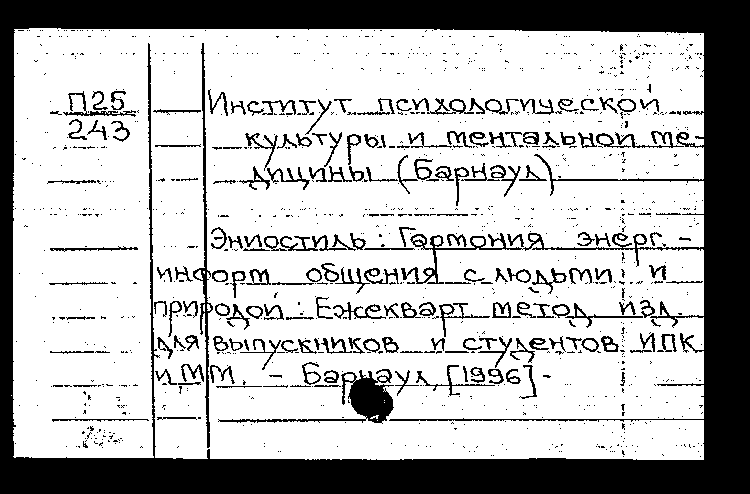 П25 Институт психологической
243 культуры и ментальной ме-
дицины (Барнаул).
Эниостиль: Гармония энерг.-
информ общения с людьми и
природой: Ежекварт метод изд.
для выпускников и студентов ИПК
и ММ. - Барнаул, [1996]-